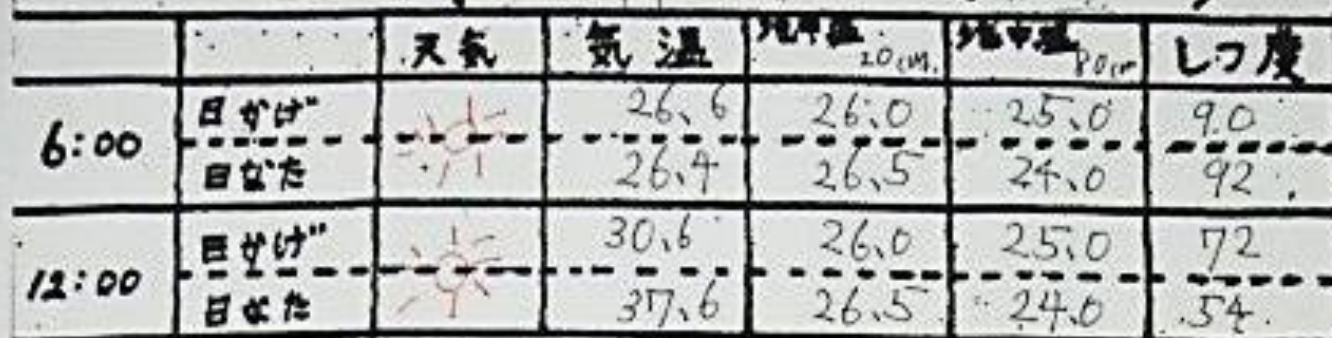 天気 気温 地中温 20cm. 地中温 80cm しつ度
6:00 日かげ 26.6 26.0 25.0 90
日なた 26.4 26.5 24.0 92
12:00 日かげ 30.6 26.0 25.0 72
日なた 37.6 26.5 24.0 54